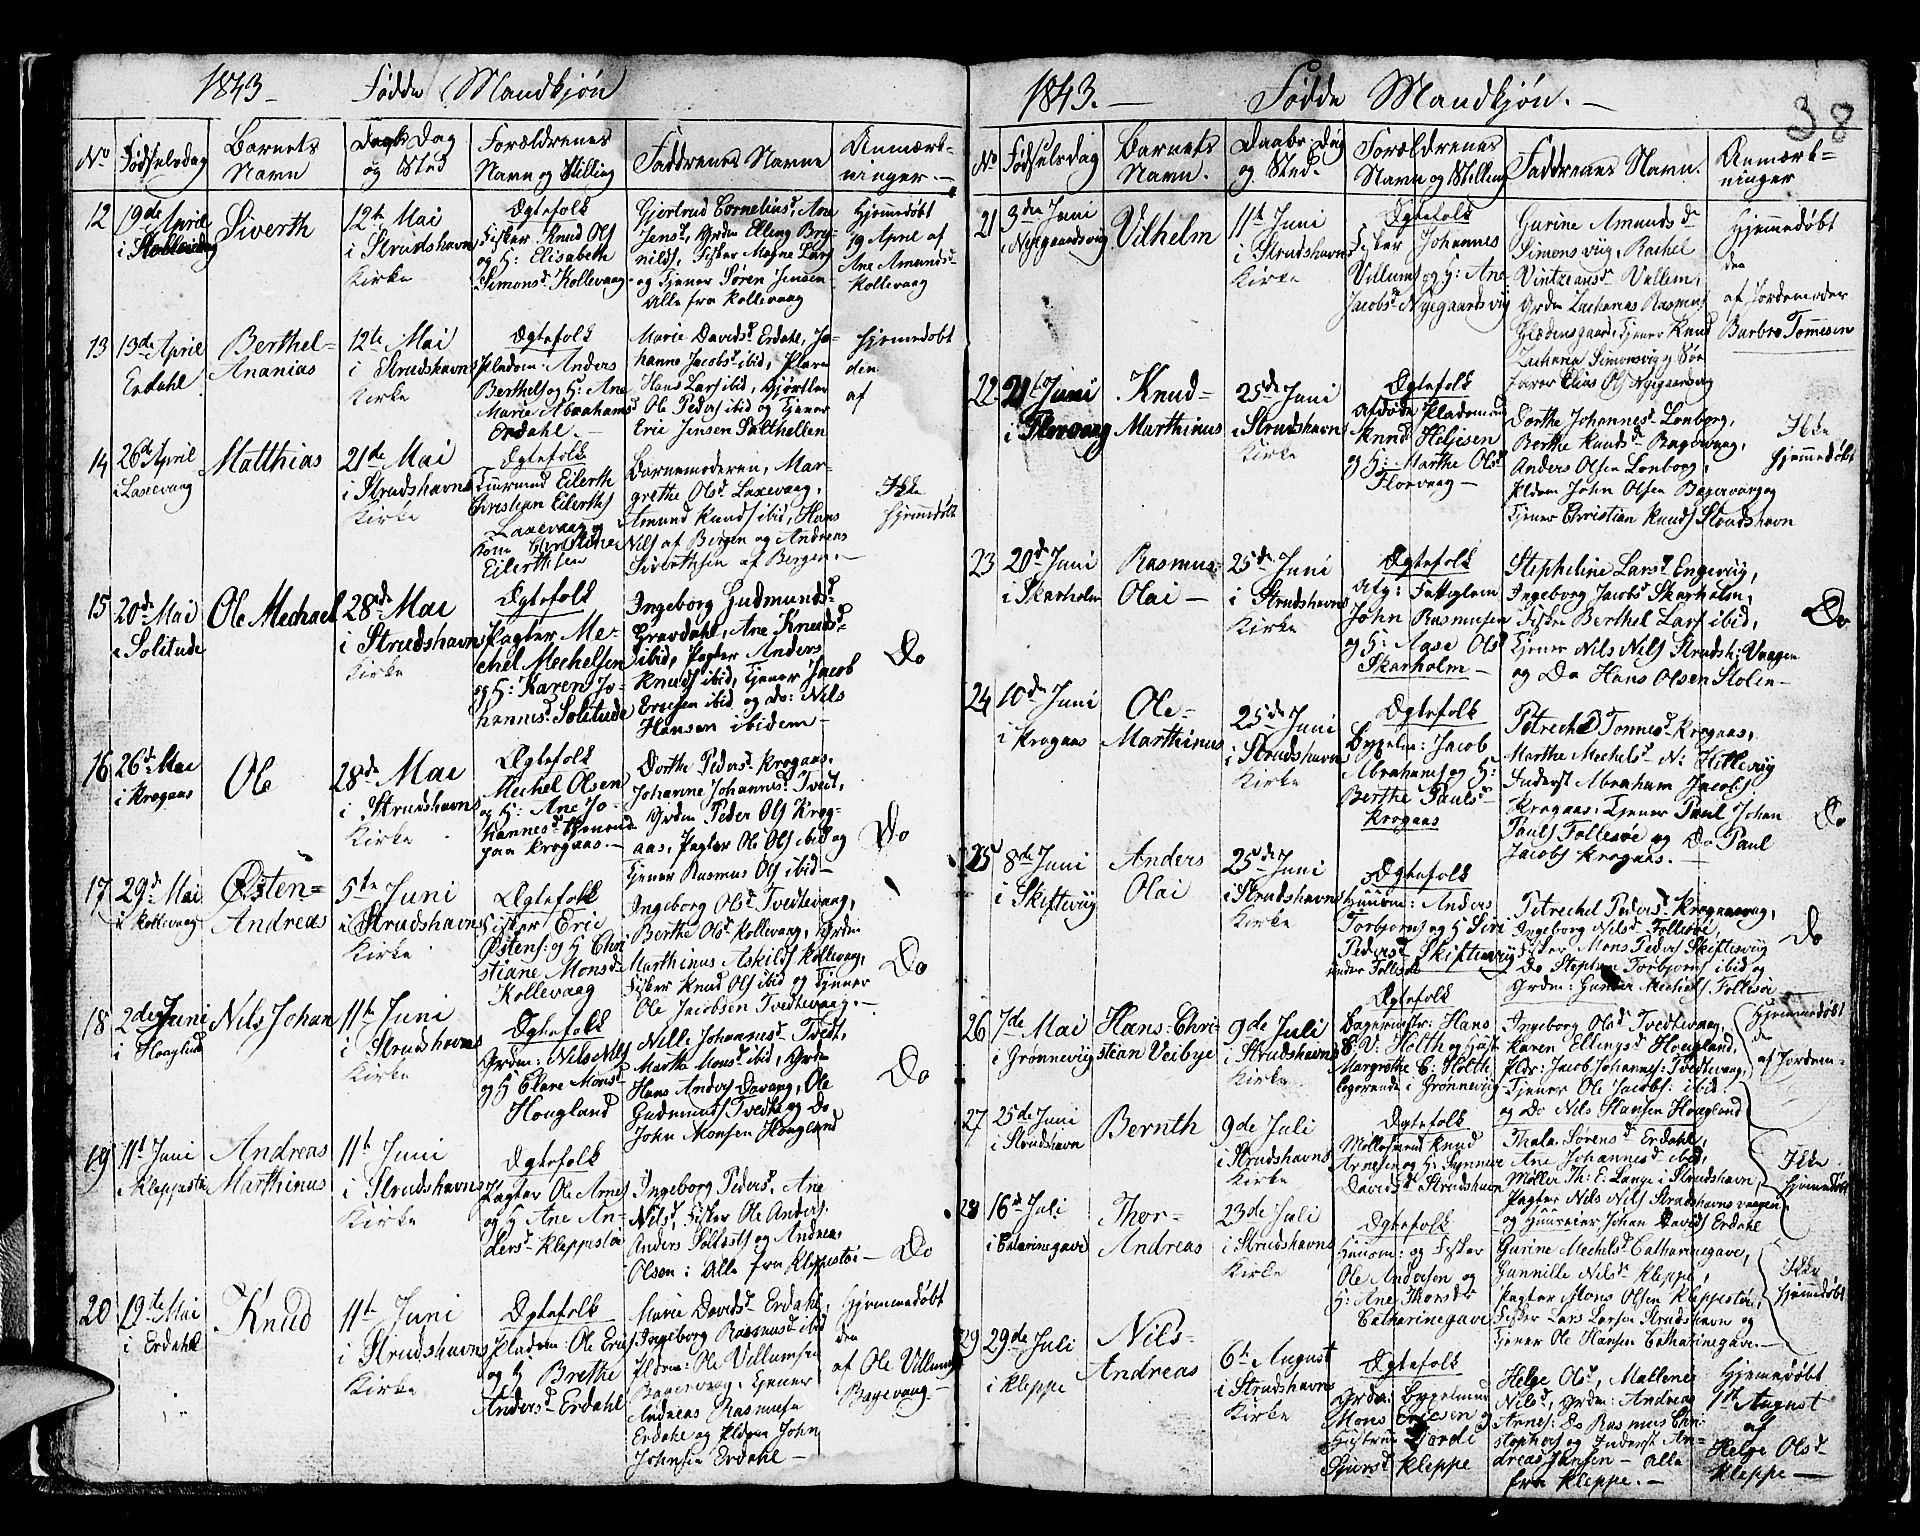 1843 Fødde Mandkjøn
No Fødselsdag Barnets Navn Daabs Dag og Sted Forældrenes Navn og Stilling Faddrenes Navne Anmærkninger.
12 19de April i Kollevaag
Siverth
12te Mai i Strudshavns Kirke
Ægtefolk
Fisker Knud Ols
og H: Elisabeth
Simonsd Kollevaag
Gjertrud Corneliusd, Ane
Jensd, Grdm Elling Bry-
nilds, Fisker Mogne Lars
og Tjener Søren Jensen
Alle fra Kollevaag
Hjemmedøbt
19 April af
Ane Amunds
Kollevaag
13 13de April Erdahl
Berthel-
Ananias
12te Mai
i Strudshavns
Kirke
Ægtefolk
Pladsm: Anders
Berthels og H: Ane
Marie Abrahamsd
Erdahl.
Marie Davidsd Erdahl, Jo-
hanne Jacobsd ibid,
Hans Lars ibid,
Ole Peders ibid og Tjener
Eric Jensen Salthellen
Hjemmedøbt
den
af
14 26de April
i Laxevaag
Matthias
21de Mai
i Strudshavns
Kirke
Ægtefolk
Eilerth
Christian Eilerths
Laxevaag og
Kone
Eilerthsen
Barnemoderen, Mar-
grethe Olsd Laxevaag,
Amund Knuds ibid, Hans
Nils af Bergen og Andreas
Siverthsen af Bergen.
Ikke
hjemmedøbt
15 20de Mai
i Solitude
Ole Mechael
28de Mai
i Strudshavns
Kirke
Ægtefolk
Pagter Me-
chel Mechelsen
og H: Karen Jo-
hannisd Solitude
Ingeborg Gudmunds-
Gravdahl, Ane Knudsd
ibid, Pagter Anders
Knuds ibid, Tjener Jacob
Ericsen ibid og do: Nils
Hansen ibidem
Do
16 26de Mai
i Krogaas
Ole
28de Mai
i Strudshavns
Kirke
Ægtefolk
Mechel Olsen
og H: Ane Jo-
hannesd
paa Krogaas.
Dorthe Pedersd Krogaas,
Johanne Johannisd Tvedt,
Grdm Peder Ols Krog-
aas, Pagter Ole Ols ibid og
Tjener Rasmus Ols ibid
Do
17 29de Mai
i Kollevaag
Østen=
Andreas
5te Juni
i Strudshavns
Kirke
Ægtefolk
Fisker Eric
Østens: og H Chri
stiane Monsd
Kollevaag
Ingeborg Olsd Tvedtevaag,
Berthe Olsd Kollevaag, Grdm
Marthinus Askilds Kollevaag,
Fisker Knud Ols ibid og Tjener
Ole Jacobsen Tvedtevaag.
Do
18 2de Juni
i Hougland
Nils Johan
11te Juni
i Strudshavns
Kirke
Ægtefolk
Grdm: Nils Nils
og H Elare Monsd
Hougland
Nille Johannesd Tvedt,
Martha Monsd ibid, Grdm
Hans Anders Davang, Ole
Gudmunds Tvedte og Do
John Monsen Hougland
Do
19 11te Juni
i Kleppestø
Andreas
Marthinus
11te Juni
i Strudshavns
Kirke
Ægtefolk
Pagter Ole Arnes
og H Ane An-
dersd Kleppestø
Ingeborg Pedersd, Ane
Nilsd, Fisker Ole Anders,
Anders og Andreas
Olsen: Alle fra Kleppestø
Do
20 19te Mai
i Erdahl
Knud
11te Juni
i Strudshavns
Kirke
Ægtefolk
Pladsm: Ole Erics
og H Brethe
Andersd Erdahl
Marie Davidsd Erdahl,
Ingeborg Rasmusd ibid
Pldsm: Ole Villumsen
Bagevaag, Tjener
Andreas Rasmusen
Erdahl og Pldsm John
Johnsen Erdahl
Hjemmedøbt
den
af Ole Villums
Bagevaag
1843. Fødde Mandkjøn. 38
No Fødselsdag Barnets Navn. Daabs Dag og Sted. Forældrenes Navn og Stilling Faddrenes Navn. Anmærkninger
21 3die Juni
i Nygaardsviig
Vilhelm
11te Juni
i Strudshavns
Kirke
Ægtefolk
Fisker Johannes
Villums og H: Ane
Jacobsd Nygaardsviig
Gurine Amundsd
Simonsviig, Rachel
Vallem,
Grdm Zacharias Rasmus
Tjener Knud
Zacharia Simonsviig og
Elias Ols Nygaardsviig
Hjemmedøbt
den
af Jordemoder
Barbro Tomesen
22 21de Juni
i Florvaag
Knud-
Marthinus
25de Juni
i Strudshavn
Kirke
Ægtefolk
Afdøde Pladsmand
Knud Heljesen
og H: Marthe Olsd
Florvaag
Dorthe Johannesd Lonborg,
Berthe Knudsd Bagevaag,
Anders Olsen Lonborg,
Pldsm John Olsen Bagevaag og
Tjener Christian Knuds Strudshavn
Ikke
hjemmedøbt
23 20de Juni
i Skarholm
Rasmus
Olai
25de Juni
i Strudshavns
Kirke
Ægtefolk
John Rasmusen
og H: Aase Olsd
Skarholm
Stepheline Larsd Engeviig,
Ingeborg Jacobsd Skarholm,
Fisker Berthel Lars ibid,
Tjener Nils Nils Strudsh: Vaagen
og Do Hans Olsen Stolen
Do
24 10de Juni
i Krogaas
Ole-
Marthinus
25de Juni
i Strudshavns
Kirke
Ægtefolk
Bygselm: Jacob
Abrahams og H:
Berthe Paulsd
Krogaas
Petrechel Tomesd Krogaas,
Marthe Mechelsd N: Hilleviig
Inderst Abraham Jacobs
Krogaas, Tjener Paul Johan
Pauls Follesøe og Do Paul
Jacobs Krogaas.
Do
25 8de Juni
i Skifteviig
Anders
Olai
25de Juni
i Strudshavns
Kirke
Ægtefolk
Huusm: Anders
Torbjorns og H Siri
Pedersd Skifteviig
under Follesøe
Petrechel Pedersd Krogaasvaag,
Ingeborg Nilsd Follesøe,
Fisker Mons Peders Skifteviig
Do Stephen Torbjorns ibid og
Grdm: Gunder Mechels Follesøe
Do
26 7de Mai
i Grønneviig
Hans-Chri
stian Veibye
9de Juli
i Strudshavns
Kirke
Ægtefolk
Bagermester: Hans
V: Holth og Hust
Margrethe C: Holth
logerende i Grønneviig
Ingeborg Olsd Tvedtevaag,
Karen Ellingsd Hougland,
Plds: Jacob Johannes: Tvedtevaag,
Tjener Ole Jacobs: ibid
og Do Nils Hansen Hougland
Hjemmedøbt
d
af Jordem-
27 25de Juni
i Strudshavn
Bernth
9de Juli
i Strudshavns
Kirke
Ægtefolk
Møllersvend Knud
Arnesen og H: Synneve
Davidsd Strudshavn
Thala Sørensd Erdahl,
Ane Johannesd ibid,
Møller Th: E. Lange i Strudshavn,
Pagter Nils Nils Strudshavns vaagen,
og Huuseier Johan Davids Erdahl
Ikke
hjemmedøbt
28 16de Juli
i Catarinegave
Thor-
Andreas
23de Juli
i Strudshavns
Kirke
Ægtefolk
Huusm: og Fisker
Ole Andersen og
H: Ane Thorsd
Catharinegave
Gurine Mechelsd Catharinegave,
Gunnille Nilsd Kleppe,
Pagter Mons Olsen Kleppestøe,
Fisker Lars Larsen Strudshavn og
Tjener Ole Hansen Catharinegave.
Ikke
hjemmedøbt
29 29de Juli
i Kleppe
Nils-
Andreas
6te August
i Strudshavns
Kirke
Ægtefolk
Grdm: Bygselmand
Mons Ericsen og
Hustrue Gjordi
Sjursd Kleppe
Helge Olsd, Mallene
Nilsd, Grdm: Andreas
Arnes: Do Rasmus Chri-
stophers og Inderst An-
dreas Jansen Alle
fra Kleppe.
Hjemmedøbt
1te August
af
Helge Olsd
Kleppe